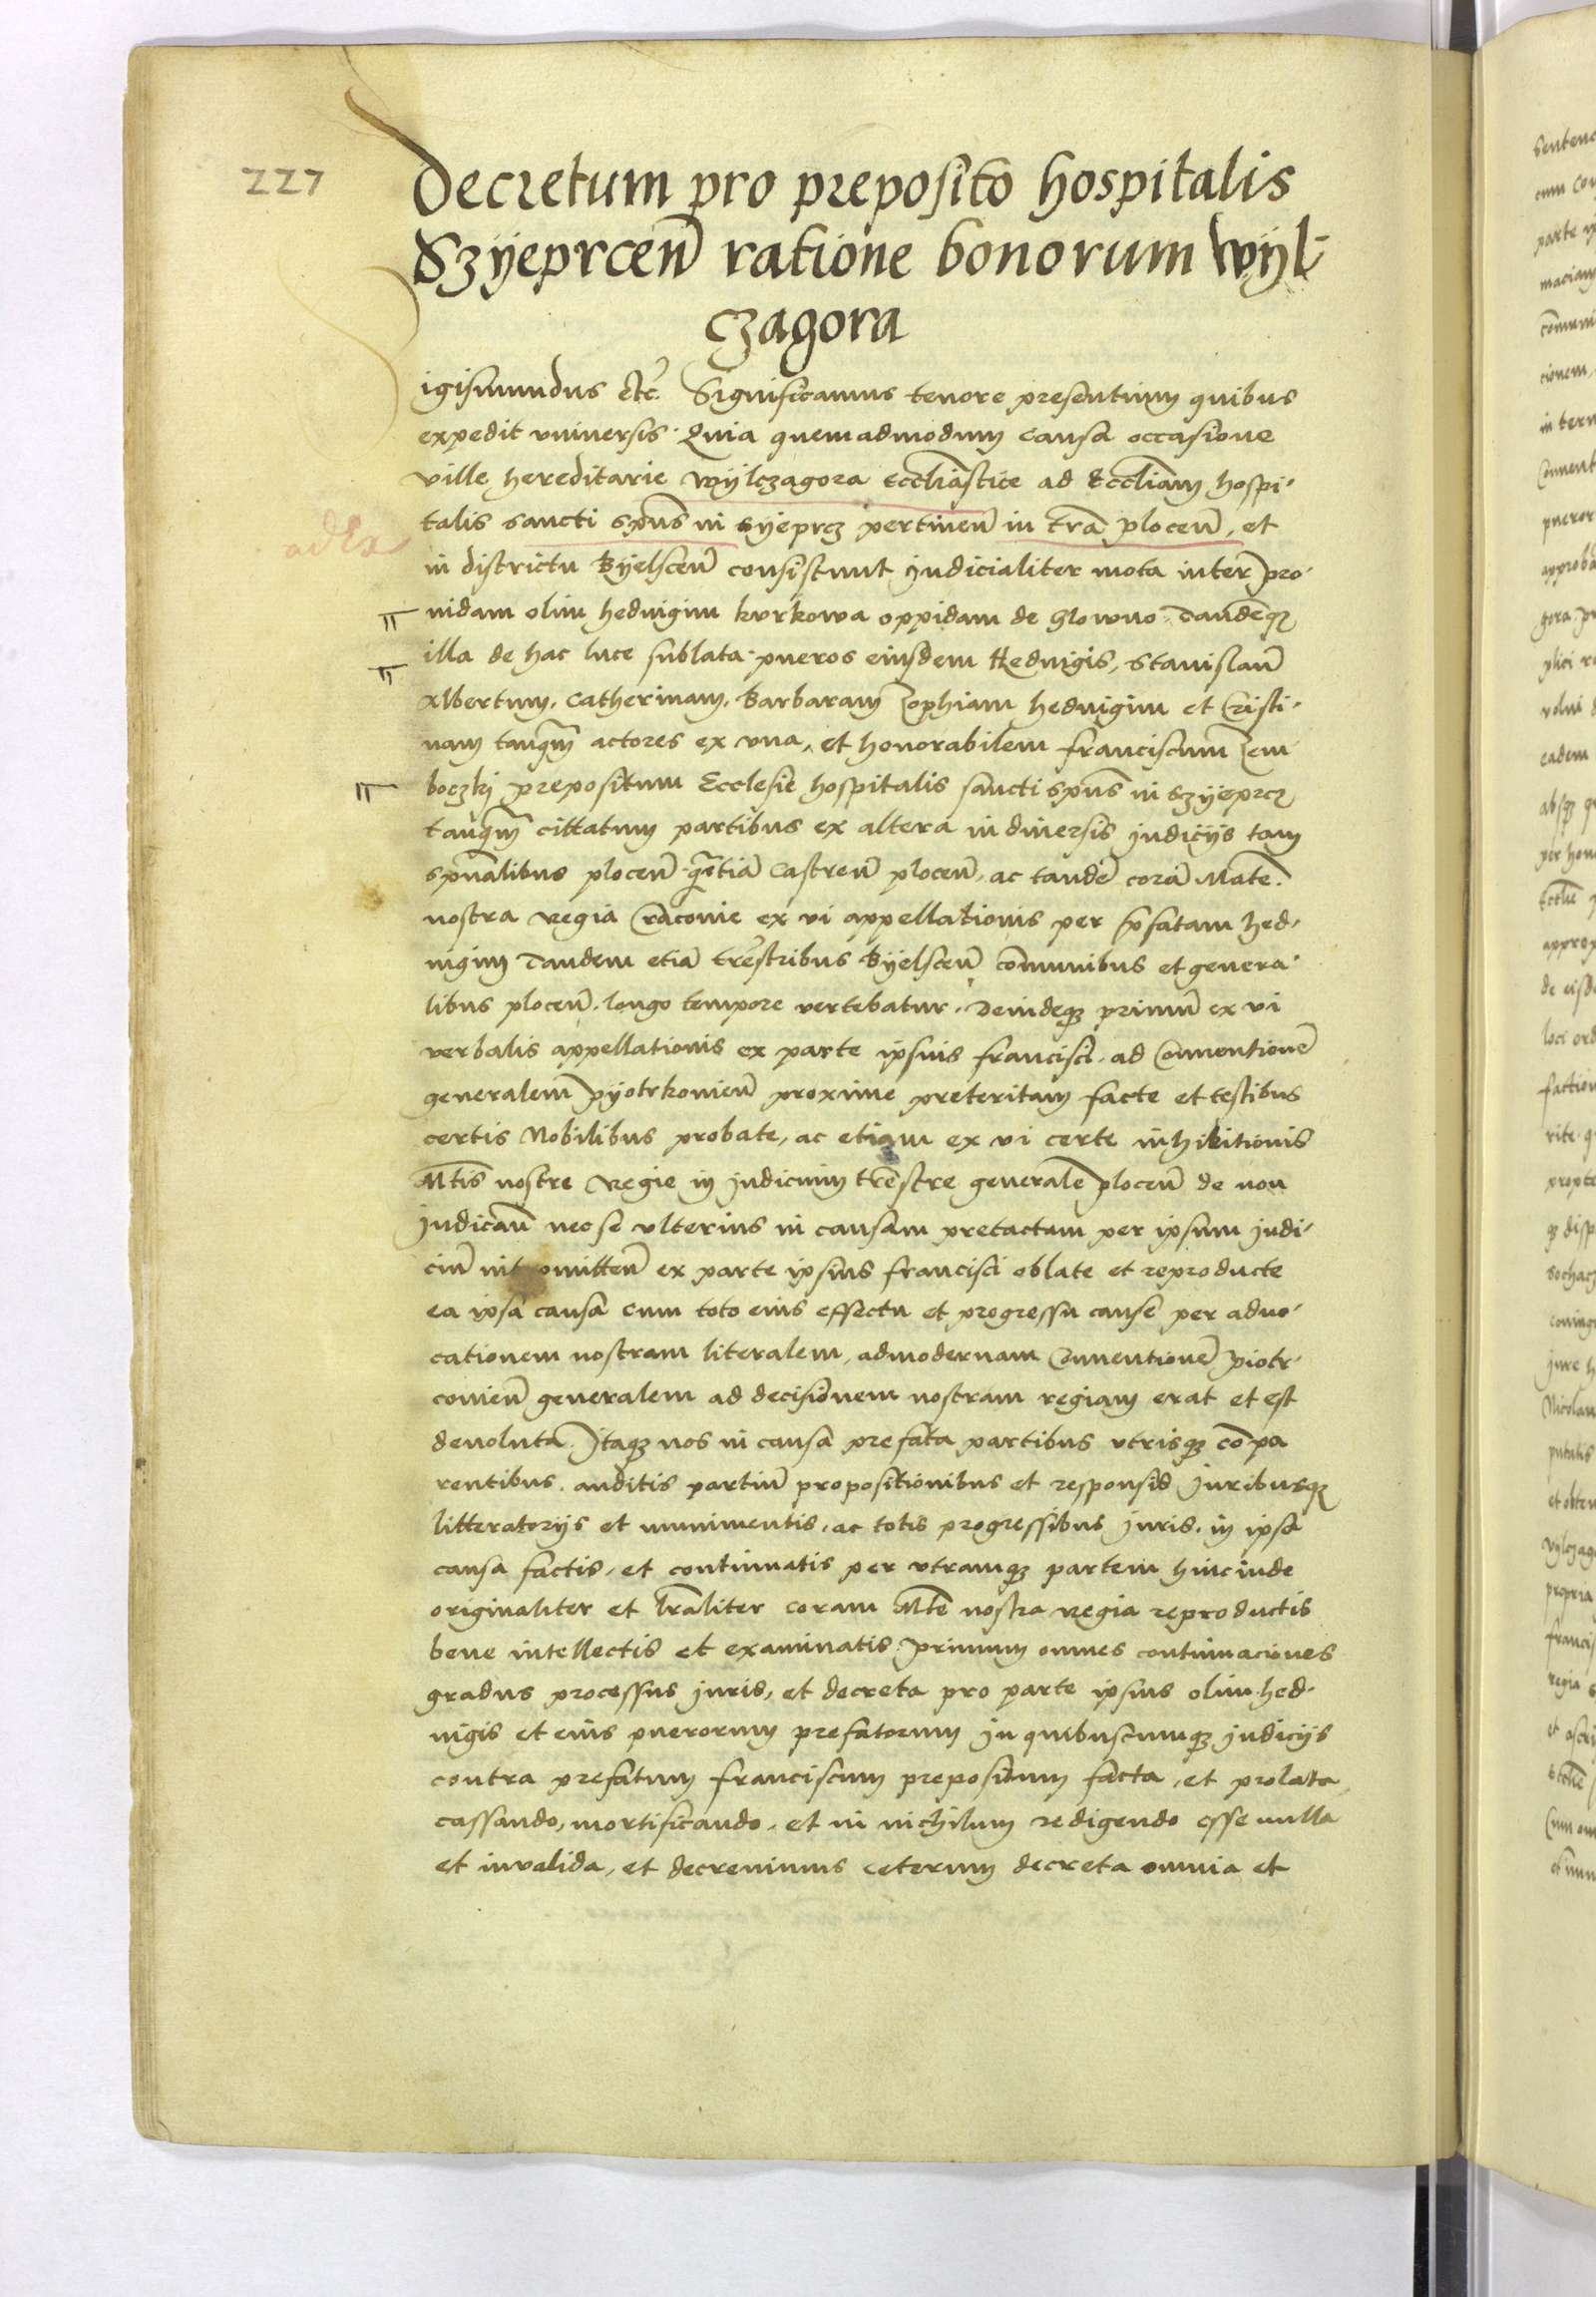 227
Decretum pro preposito hospitalis
Szyeprcen̄ ratione bonorum Wyl-
czagora
igismundus etc̄. Significamus tenore presentium quibus
expedit vniversis. Quia quemadmodum causa occasione
ville hereditarie Wylczagora Eccliastice ad Eccliam hospi-
talis sancti sp̄us in Syeprcz pertinen̄ in tr̄a plocen̄, et
in districtu Byelscen̄ consistunt judicialiter mota inter pro-
uidam olim heduigim kurkowa oppidam de Glowno. Tandemqz
illa de hac luce sublata. pueros eiusdem Heduigis, Stanislaū
Albertum, Catherinam, Barbaram Zophiam heduigim et Cristi-
nam tanq̄m actores ex vna, et honorabilem franciscum Zem
boczkj prepositum Ecclesie hospitalis sancti sp̄us in Szyeprcz
tanq̄m cittatum partibus ex altera in diuersis judicijs tam
sp̄ualibus plocen̄ Castren̄ plocen̄, ac tandē corā Mate.
nostra Regia Craconie ex vi appellationis per p̄fatam hed-
uigim Tandem etiā tr̄estribus Byelscen̄ com̄unibus et genera-
libus plocen̄. longo tempore vertebatur. Deindeqz primū ex vi
verbalis appellationis ex parte ipsius francisci. ad Conuentionē
generalem pyotrkonien̄ proxime preteritam facte et testibus
certis Nobilibus probate, ac etiam ex vi certe inhibitionis
Mtis nostre Regie in judicium tr̄estre generale plocen̄ de non
judicān nec se vlterius in causam pretactam per ipsum judi-
ciū intromitten̄ ex parte ipsius francisci oblate et reproducte
ea ipsa causa cum toto eius effectu et progressu cause per aduo-
cationem nostram literalem, ad modernam Conuentionē piotr-
conien̄ generalem ad decisionem nostram regiam erat et est
deuoluta. Itaqz nos in causa prefata partibus vtrisqz co̅pa
rentibus. auditis partiū propositionibus et responsis Juribusqz
litteratorijs et munimentis, ac totis progressibus juris, in ipsa
causa factis, et continuatis per vtramqz partem hincinde
originaliter et lr̄aliter coram Mte nostra Regia reproductis
bene intellectis et examinatis. primum omnes contumaciones
gradus processus juris, et decreta pro parte ipsius olim hed-
uigis et eius puerorum prefatorum in quibuscumqz judicijs
contra prefatum franciscum prepositum facta, et prolata
cassando, mortificando, et in nichilum redigendo esse nulla
et invalida, et decreuimus ceterum decreta omnia et